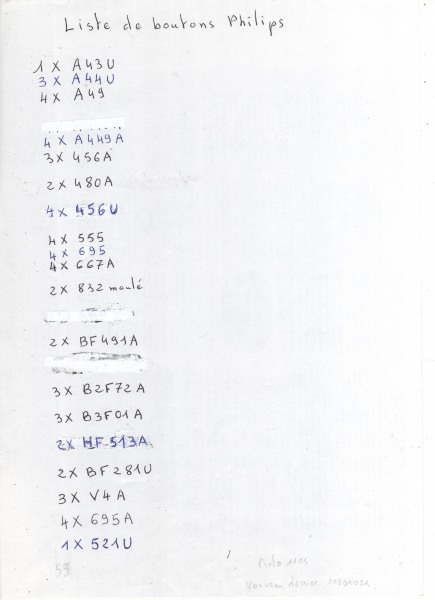 Liste de boutons Philips
1 X A43U
3 X A44U
4 X A49
4 X A449A
3X 456A
2X 480A
4X 456U
4X 555
4X 695
4X 667A
2X 832 moulé
2X BF491A
3X B2F72A
3X B3F01A
2X HF513A
2X BF281U
3X V4A
4X 695A
1X 521U
59
dossier